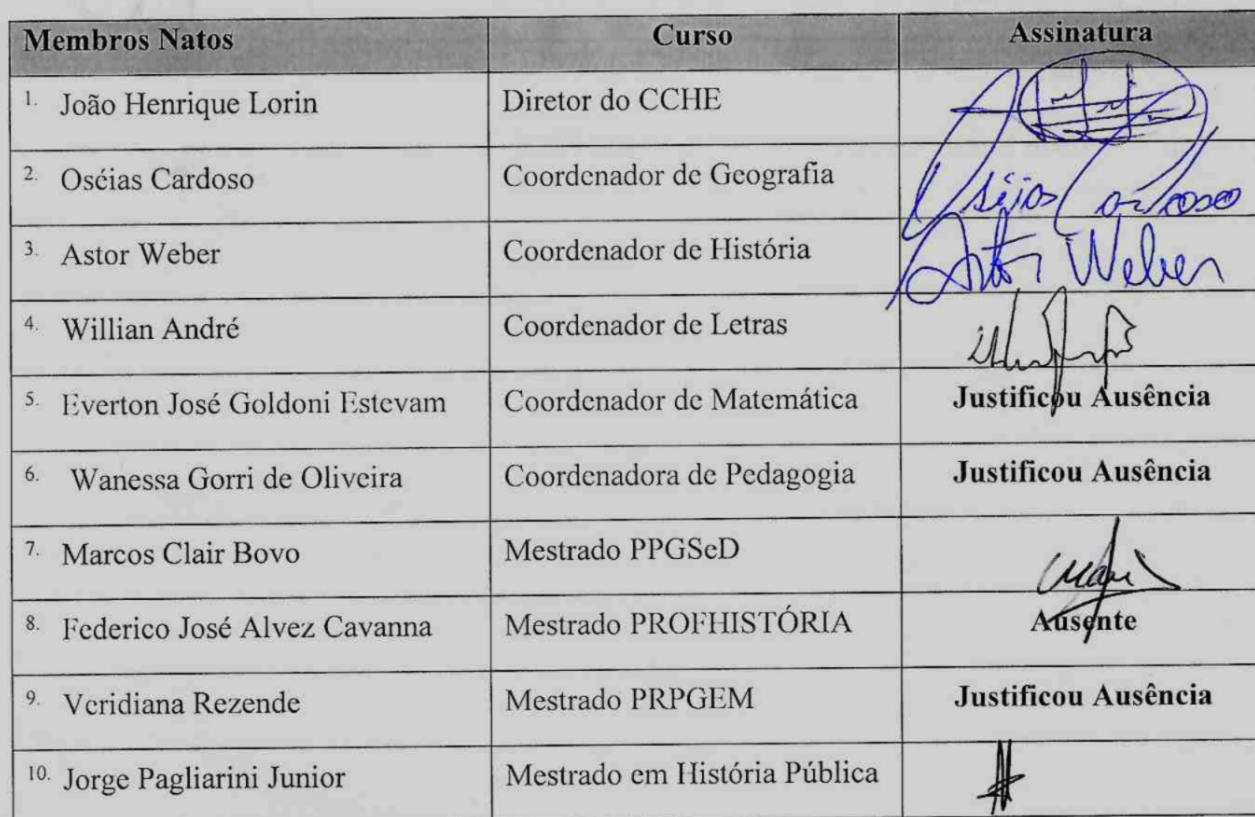 Membros Natos Curso Assinatura
1. João Henrique Lorin Diretor do CCHE
2. Oséias Cardoso Coordenador de Geografia Oséias Cardoso
3. Astor Weber Coordenador de História Astor Weber
4. Willian André Coordenador de Letras
5. Everton José Goldoni Estevam Coordenador de Matemática Justificou Ausência
6. Wanessa Gorri de Oliveira Coordenadora de Pedagogia Justificou Ausência
7. Marcos Clair Bovo Mestrado PPGSeD
8. Federico José Alvez Cavanna Mestrado PROFHISTÓRIA Ausente
9. Veridiana Rezende Mestrado PRPGEM Justificou Ausência
10. Jorge Pagliarini Junior Mestrado em História Pública